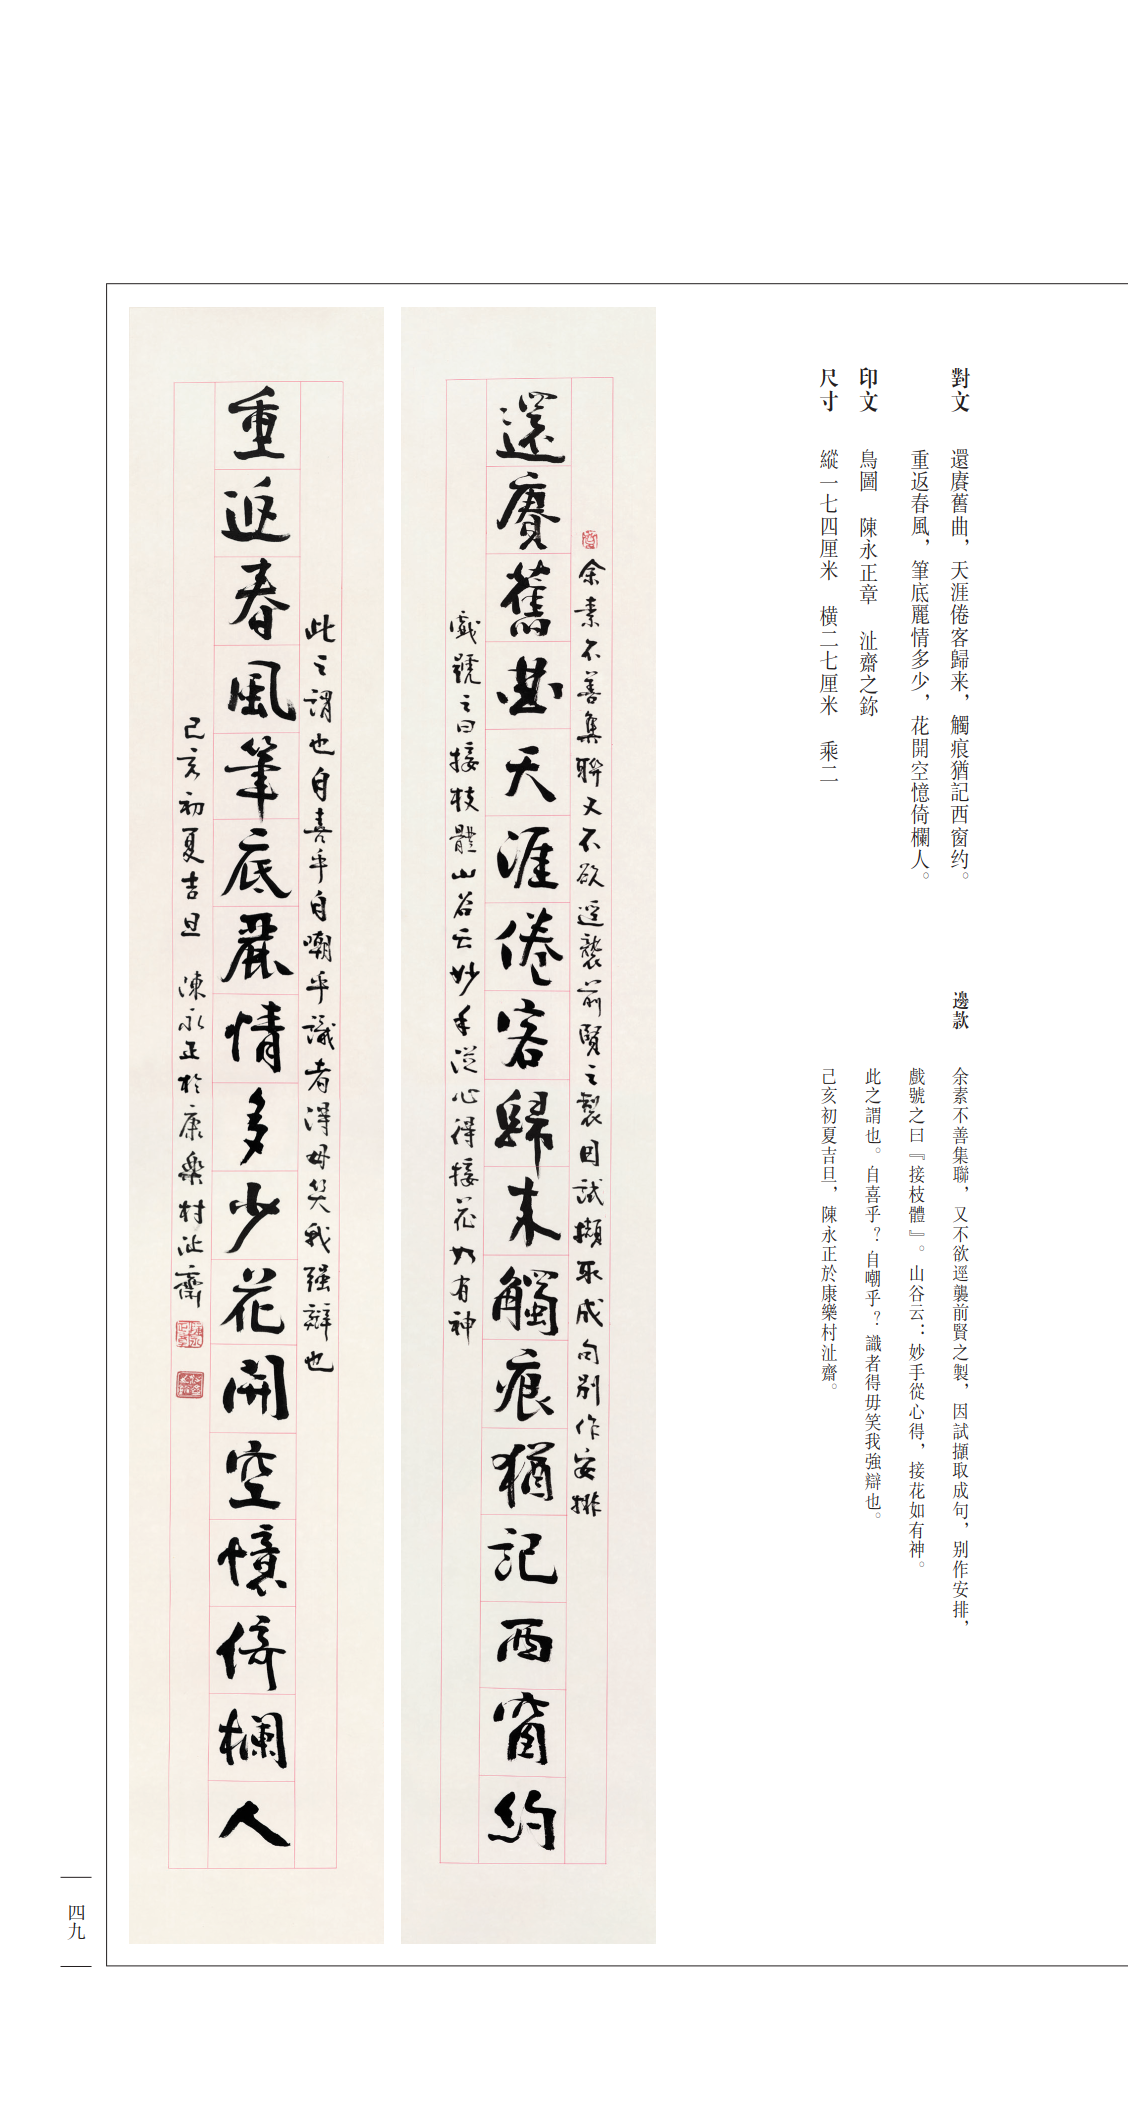 對文　還賡舊曲，天涯倦客歸来，觸痕猶記西窗约。
重返春風，筆底麗情多少，花開空憶倚欄人。
印文　鳥圖　陳永正章　沚齋之鉨
尺寸　縱一七四厘米　横二七厘米　乘二
邊款　余素不善集聯，又不欲逕襲前賢之製，因試擷取成句，别作安排，
戲號之曰『接枝體』。山谷云：妙手從心得，接花如有神。
此之謂也。自喜乎？自嘲乎？識者得毋笑我強辯也。
己亥初夏吉旦，陳永正於康樂村沚齋。
余素不善集聯又不欲逕襲前賢之製因試擷取成句别作安排
還賡舊曲天涯倦客歸来觸痕猶記西窗約
戲號之曰接枝體山谷云妙手從心得接花如有神
此之謂也自喜乎自嘲乎識者得毋笑我强辯也
重返春風筆底麗情多少花開空憶倚欄人
己亥初夏吉旦　陳永正於康樂村沚齋
四九